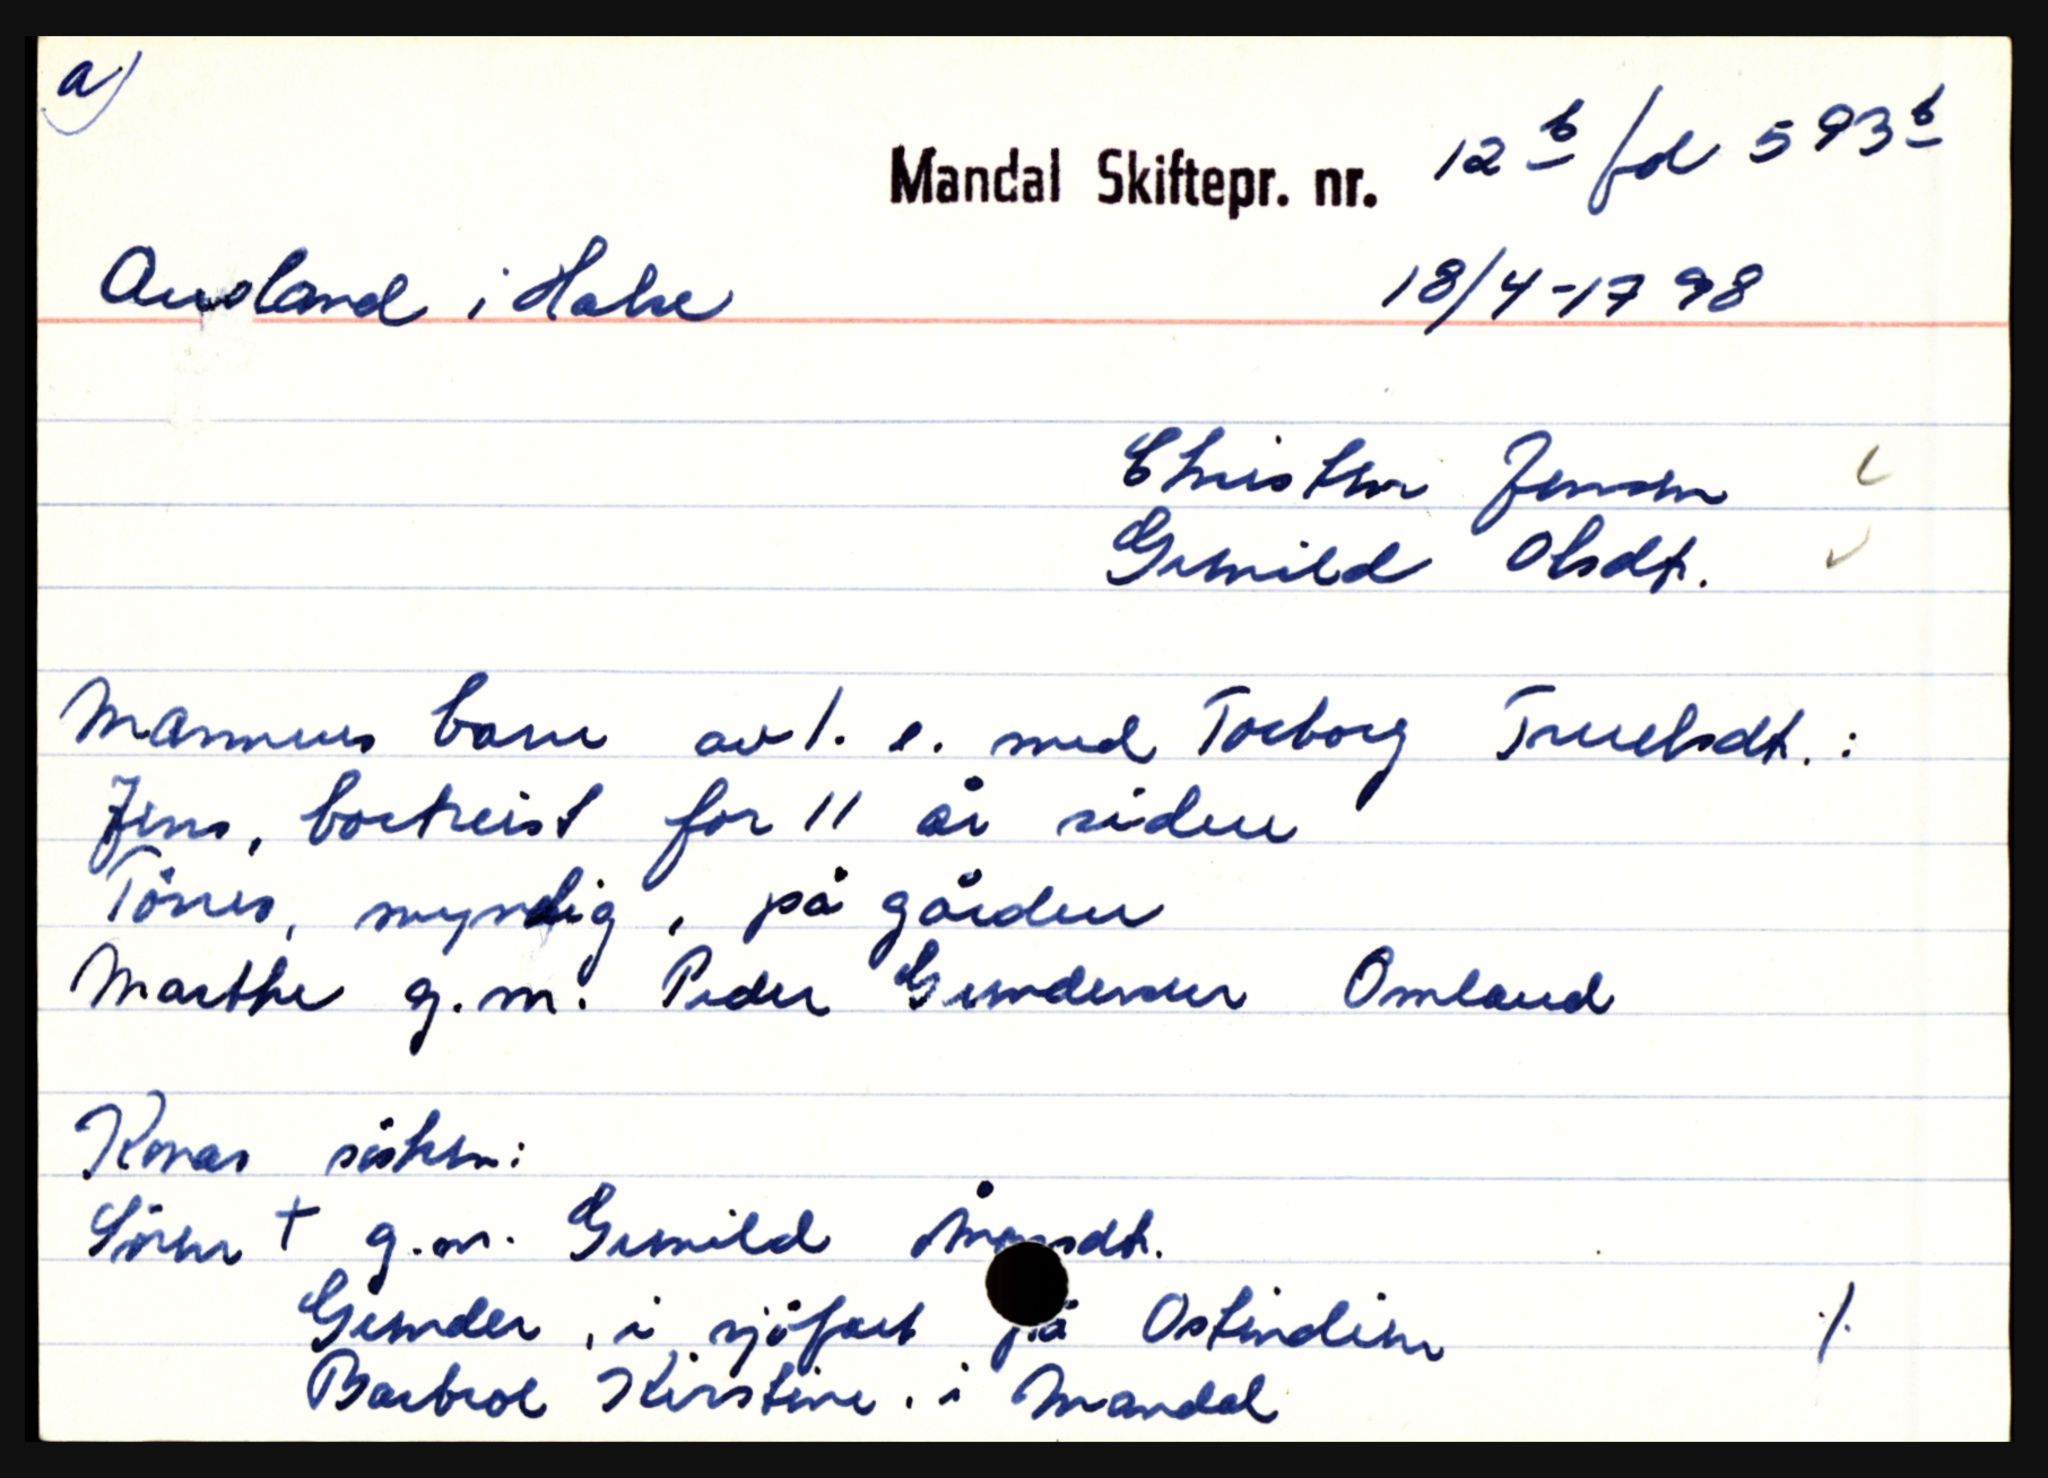 a)
Mandal Skiftepr. nr. 12 b fol 593 b
Ausland i Halse 18/4-1798
Christen Jensen
Gunild Olsdt.
Mannens barn av 1. e. med Torborg Truelsdt. :
Jens, bortreist for 11 år siden
Tönnes, myndig, på gården
Marthe g.m. Peder Gundersen Omland
Konas sösken:
Sören † g.m. Gunild
Gunder, i sjöfart på Ostindien ./.
Barbroe Kirstine, i Mandal